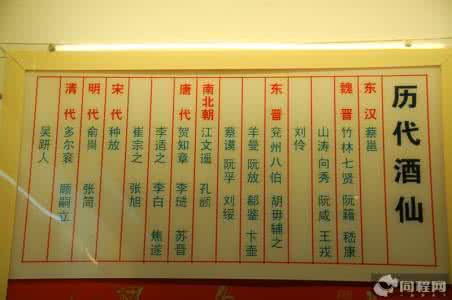 历代酒仙
东汉 蔡邕
魏晋 竹林七贤 阮籍 嵇康
山涛 向秀 阮咸 王戎
刘伶
东晋 兖州八伯 胡毋辅之
羊曼 阮放 郗鉴 卞壶
蔡谟 阮孚 刘绥
南北朝 江文遥 孔颛
唐代 贺知章 李琎 苏晋
李适之 李白 焦遂
崔宗之 张旭
宋代 种放
明代 俞贞 张简
清代 多尔衮 顾嗣立
吴趼人
同程网